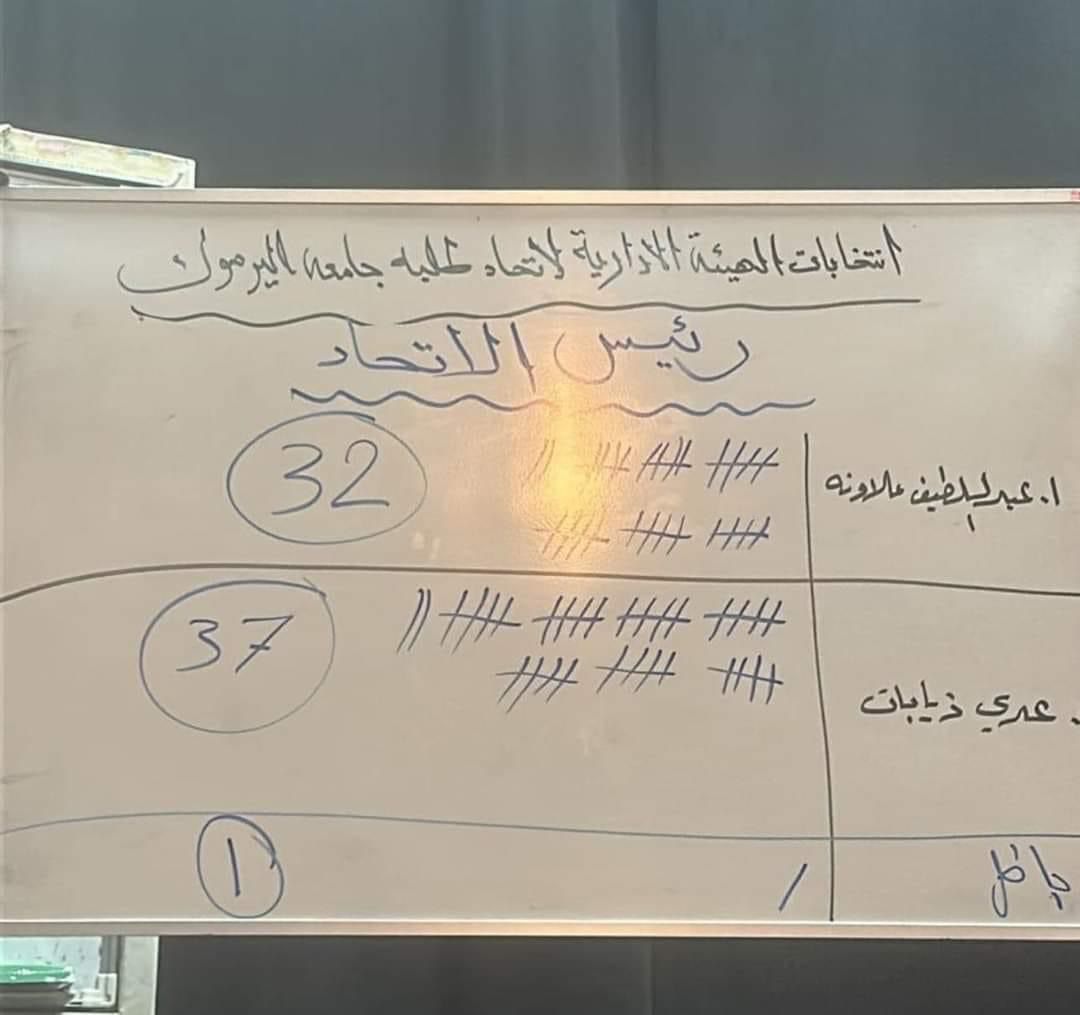 انتخابات الهيئة الادارية لاتحاد طلبه جامعه اليرموك
رئيس الاتحاد
ا. عبد اللطيف علاونه
32
. عدي ذيابات
37
باطل
1